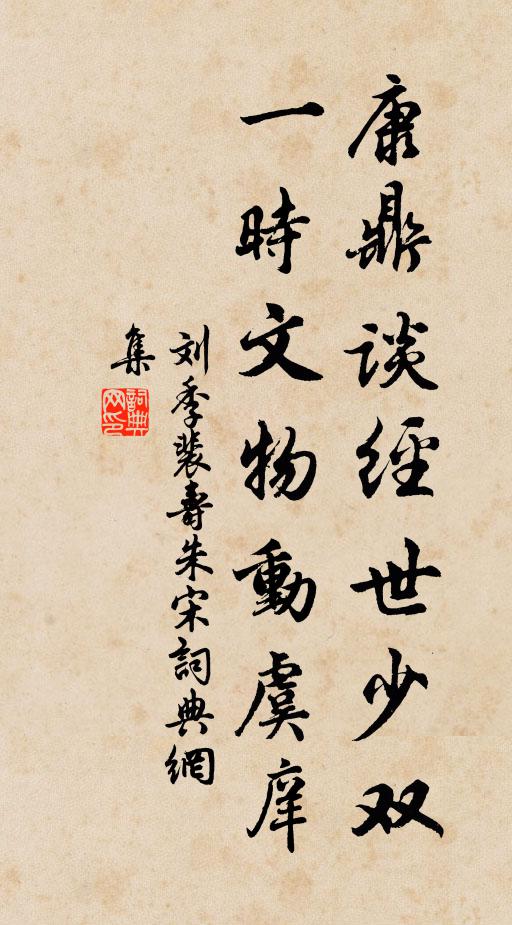 康鼎談經世少双
一時文物動虞庠
刘季裴壽朱宋詞典網
集
詞典网印